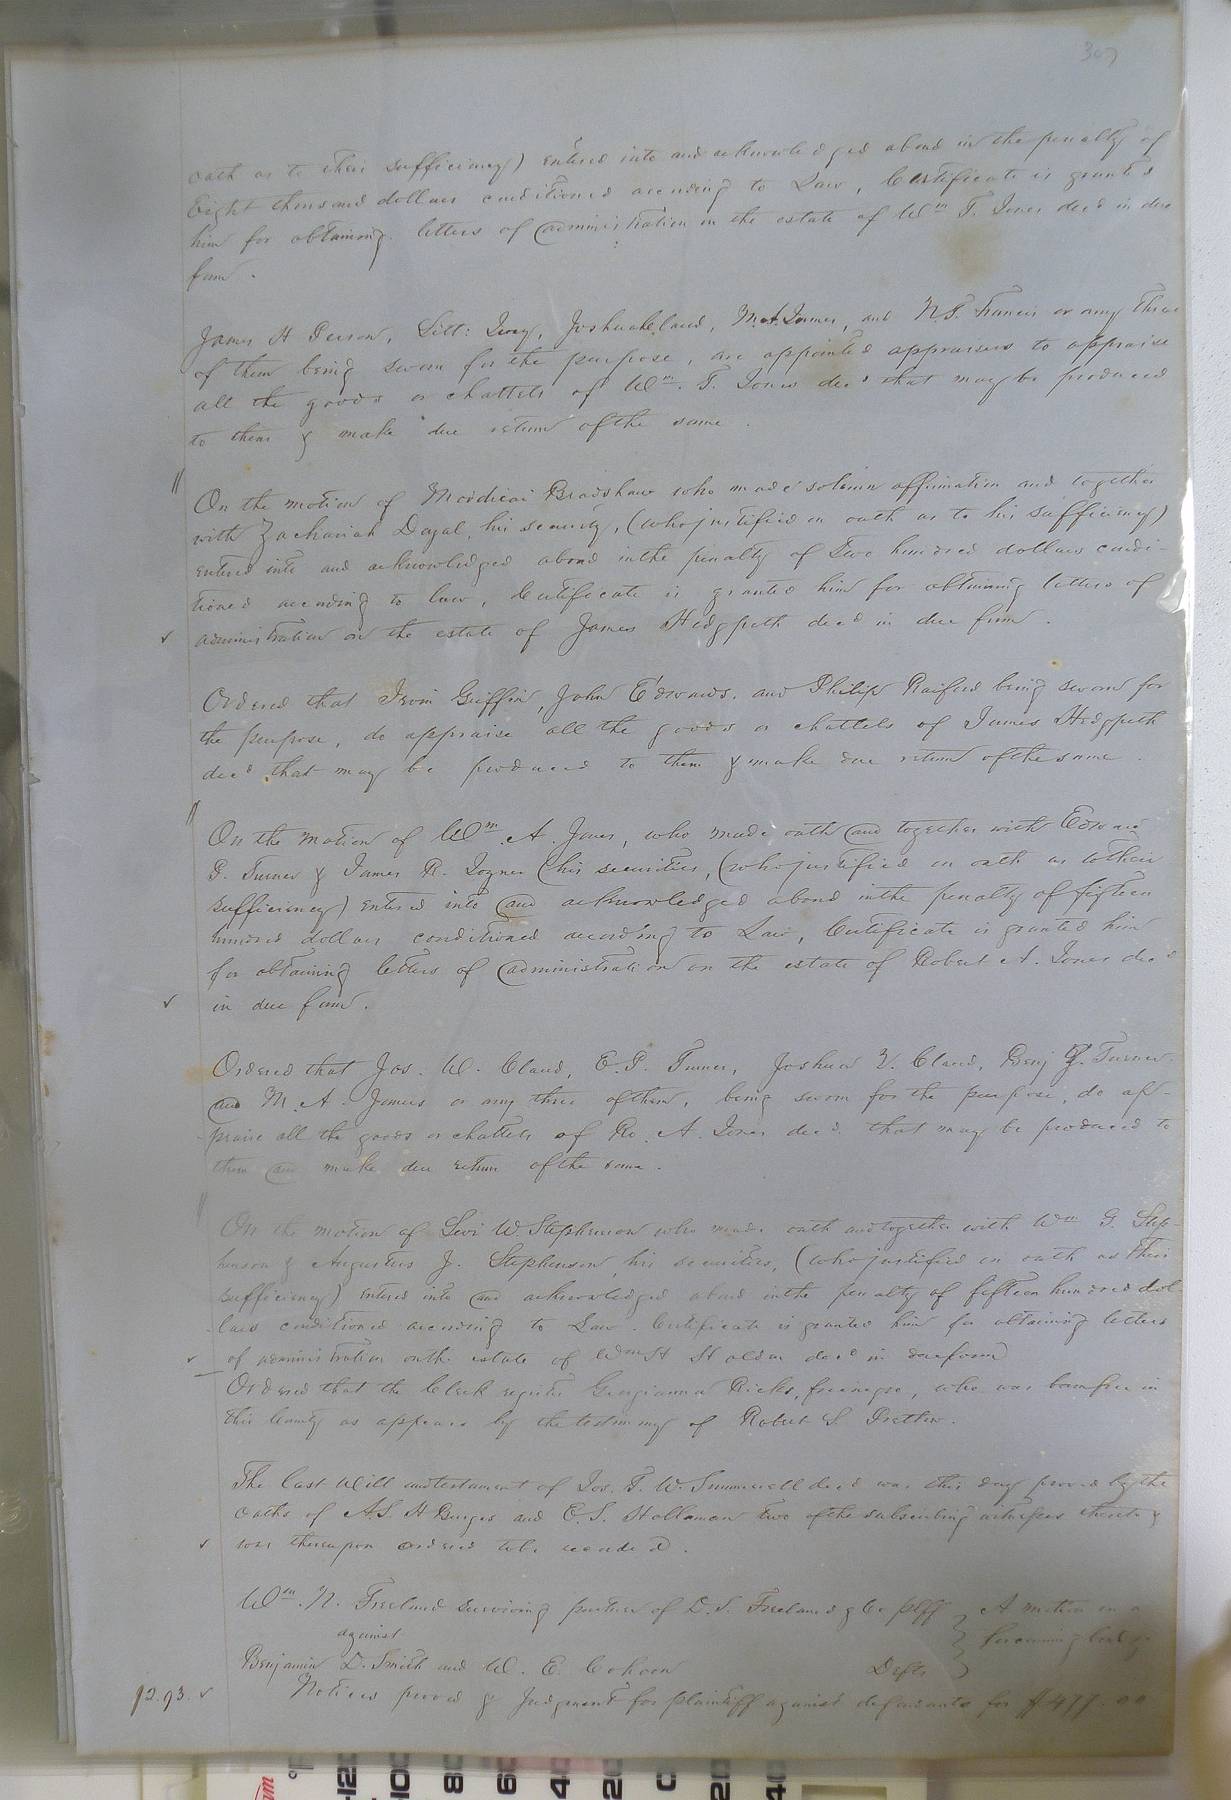 307
oath as to their sufficiency) entered into and acknowledged abond in the penalty of
Eight thousand dollars conditioned according to Law, Certificate is granted
him for obtaining letters of administration on the estate of Wm T. Jones decd in due
form.
James H Person, Litt: Ivey, Joshua Claud, M.A. James, and N.T. Francis or any three
of them being sworn for the purpose, are appointed appraisers to appraise
all the goods or chattels of Wm. T. Jones decd that may be produced
to them & make due return of the same.
"
On the motion of Mordicai Bradshaw who made solemn affirmation and together
with Zachariah Dayal, his security, (who justified on oath as to his sufficiency)
entered into and acknowledged abond in the penalty of Two hundred dollars condi-
tioned according to law, Certificate is granted him for obtaining letters of
✓ administration on the estate of James Hedgpeth decd in due form.
Ordered that Irvin Griffin, John Edwards, and Philip Raiford being sworn for
the purpose, do appraise all the goods or chattels of James Hedgpeth
decd that may be produced to them & make due return of the same.
"
On the motion of Wm. A. Jones, who made oath and together with Edward
P. Turner & James R. Joyner his securities, (who justified on oath as to their
sufficiency) entered into and acknowledged abond in the penalty of fifteen
hundred dollars conditioned according to Law, Certificate is granted him
for obtaining letters of administration on the estate of Robert A. Jones decd
✓ in due form.
Ordered that Jos. W. Claud, E.P. Turner, Joshua Claud, Benj Turner
and M. A. James or any three of them, being sworn for the purpose, do ap-
praise all the goods or chattels of Ro. A. Jones decd. that may be produced to
them and make due return of the same.
"
On the motion of Levi W Stephenson who made oath and together with Wm G. Step-
henson & Augustus J. Stephenson his securities, (who justified on oath as their
sufficiency) entered into and acknowledged abond in the penalty of fifteen hundred dol-
lars conditioned according to Law. Certificate is granted him for obtaining letters
✓ of administration on the estate of Wm H decd in due form
Ordered that the Clerk register Georgianna Ricks, free negro, who was born free in
this County as appears by the testimony of Robert S. Pretlow.
The last Will and testament of Jos. T. W. Summerell decd was this day proved by the
oaths of A.S. H Burges and E. S. Holloman two of the subscribing witnesses thereto &
✓ was thereupon ordered to be recorded.
Wm. N. Freeland surviving partner of D. S. Freeland & Co plff } A motion on a
against } forthcoming bond
Benjamin D. Smith and W. E. Cohoon Defts }
12.93. ✓ Notices proved & Judgment for plaintiff against defendants for $477.00
°F 120 100 80 60 40 20 0 20 40